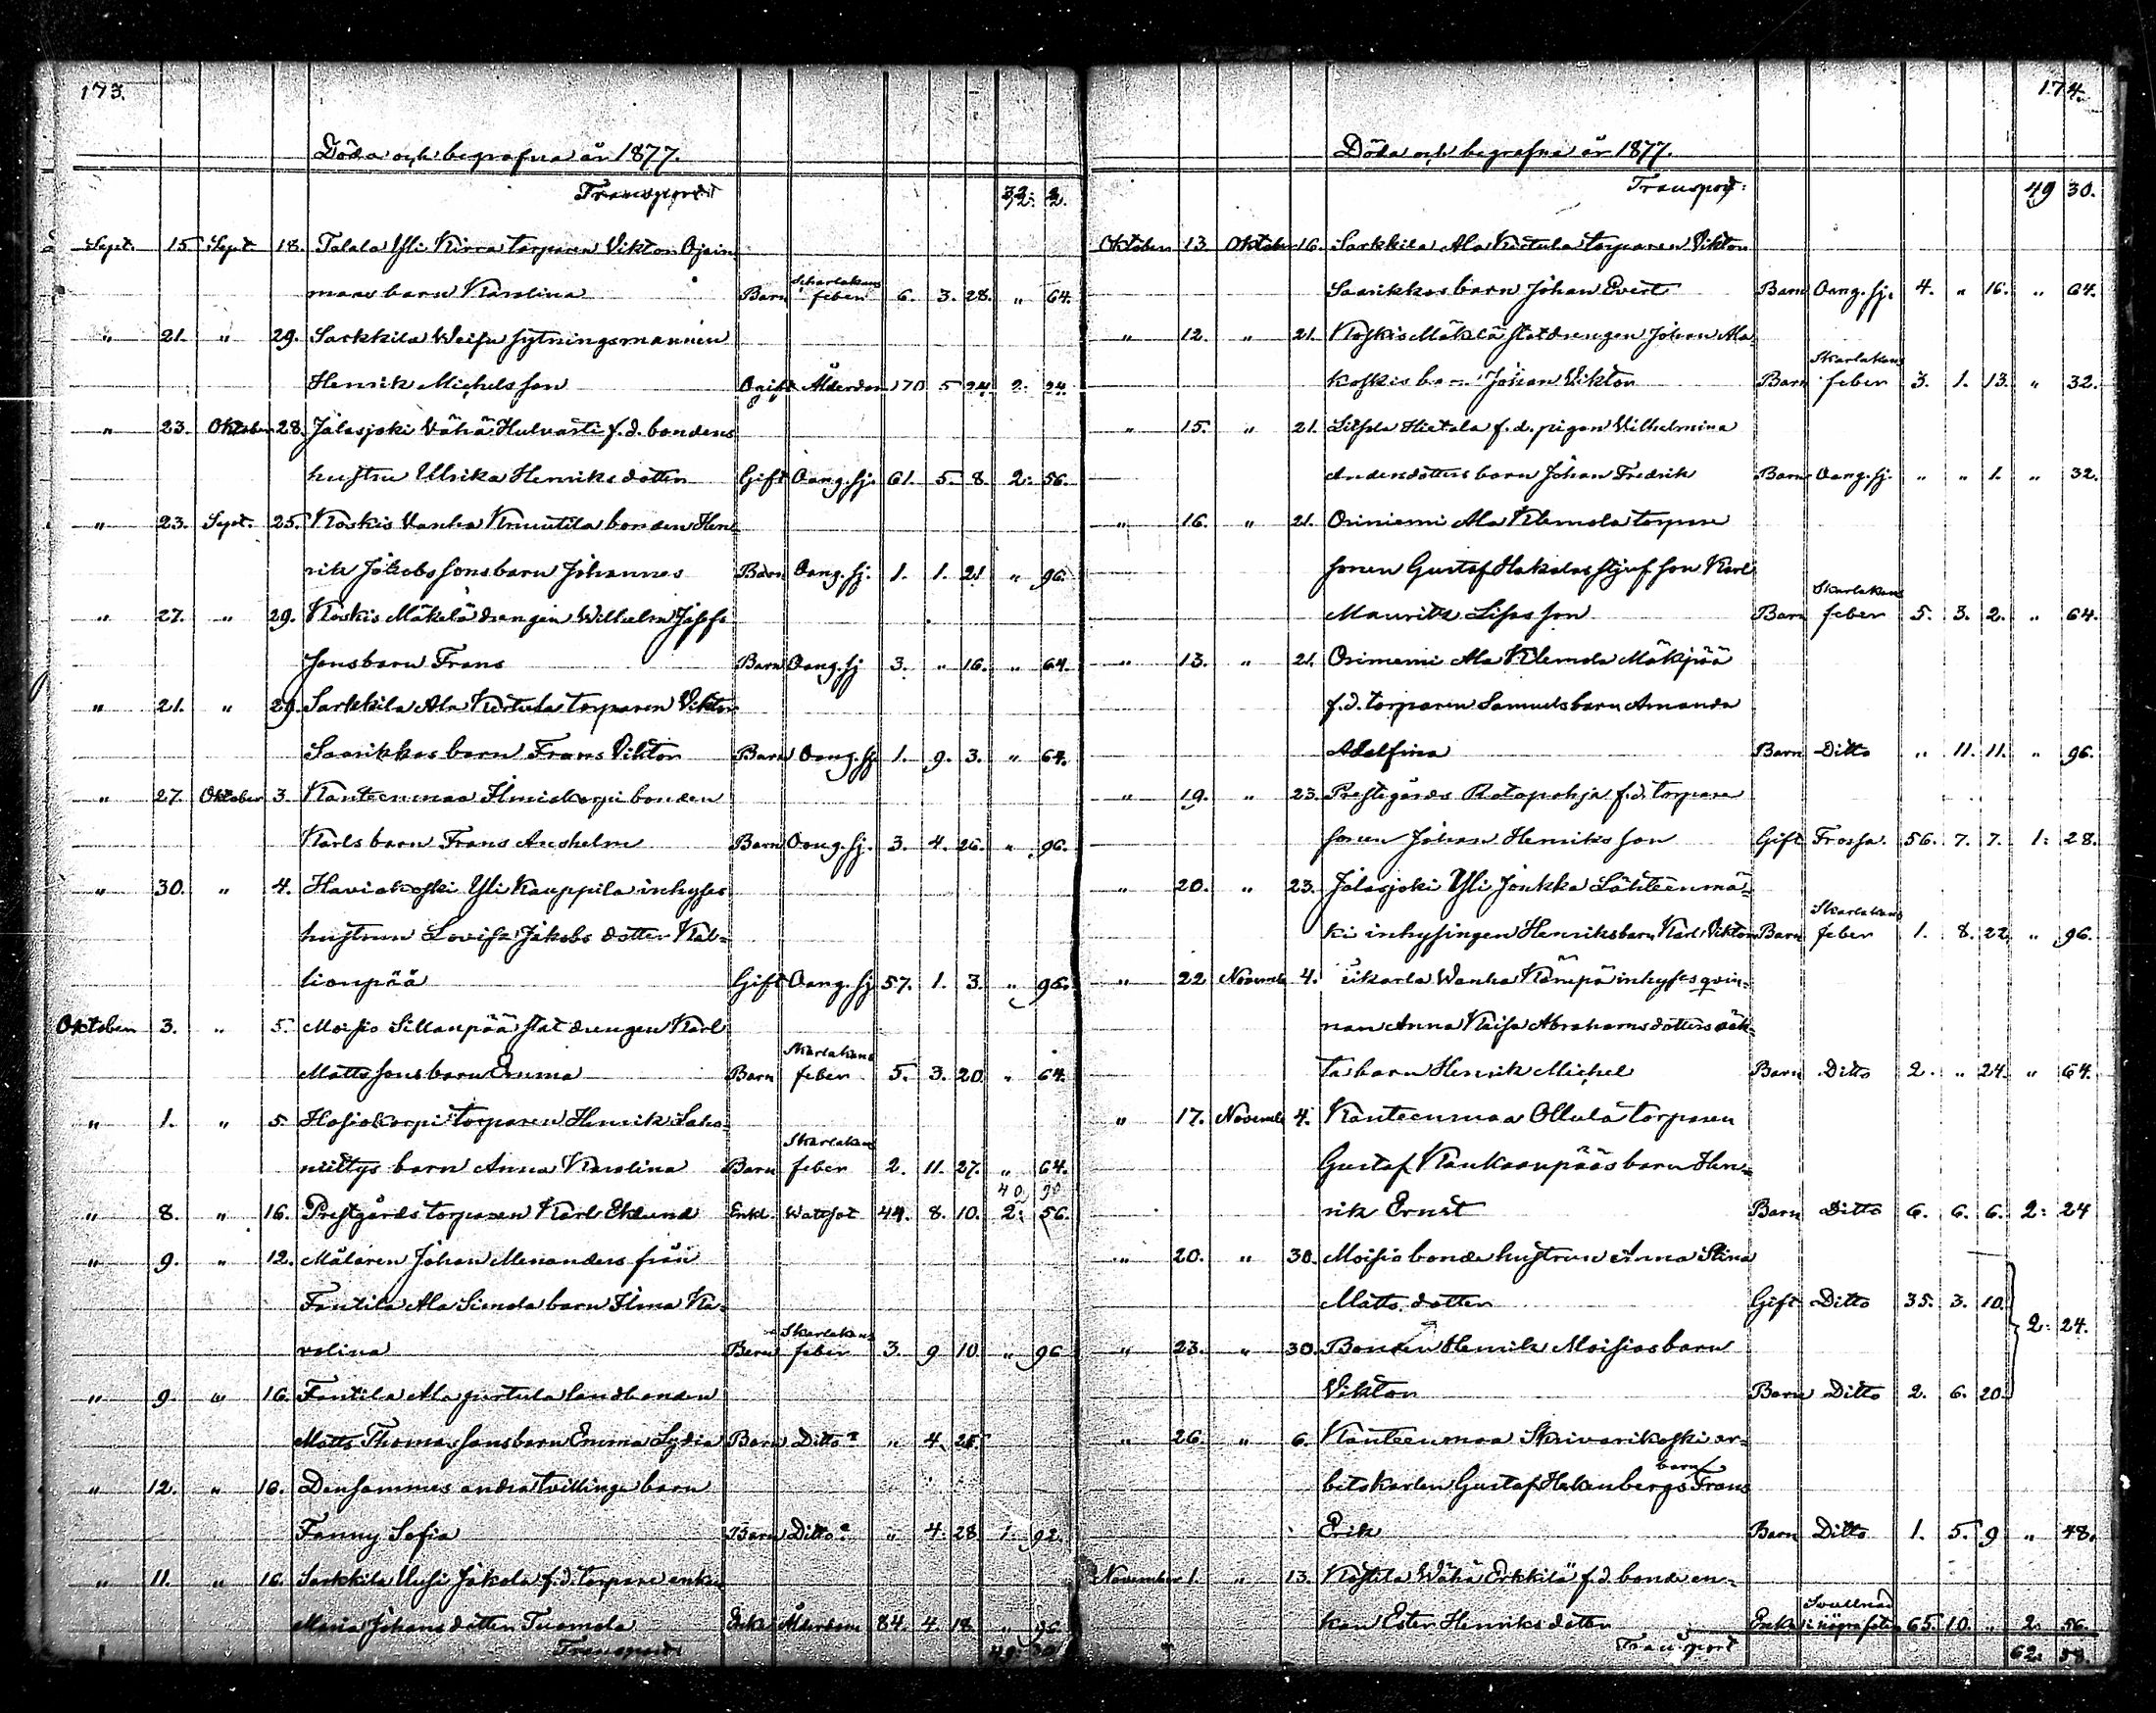 173.
Döda och begrafna år 1877.
Transport 32: 2.
Sept. 15 Sept. 18. Talala Yli Kirra torparen Viktor Ojain
mans barn Karolina Barn Scharlakans feber 6. 3. 28. " 64.
" 21. " 29. Sarkkila Weisu sytningsmannen
Henrik Michelsson Ogift Ålderdom 70 5 24. 2: 24.
" 23. Oktober 28. Jalasjoki Vähä Hulvasti f.d. bondens
hustru Ulrika Henriksdotter Gift Oang. sj. 61. 5. 8. 2: 56.
" 23. Sept. 25. Koskis Vanha Knuutila bonden Hen
rik Jakobssons barn Johannes Barn Oang. sj. 1. 1. 21 " 96.
" 27. " 29. Koskis Mäkelä drengen Wilhelm Josefs
sons barn Frans Barn Oang. sj 3. " 16. " 64.
" 21. " 29. Sarkkila Ala Kertula torparen Viktor
Saarikkos barn Frans Viktor Barn Oang. sj. 1. 9. 3. " 64.
" 27. Oktober 3. Kanteenmaa Ilmiskorpi bonden
Karls barn Frans Anshelm Barn Oang. sj. 3. 4. 26. " 96.
" 30. " 4. Haviokoski Yli Kauppila inhyses
hustrun Lovisa Jakobs dotter Kal-
lionpää Gift Oang. sj 57. 1. 3. " 96.
Oktober 3. " 5. Moisio Sillanpää statdrengen Karl
Mattssons barn Emma Barn Skarlakans feber 5. 3. 20. " 64.
" 1. " 5. Hosiokorpi torparen Henrik Saha-
miltys barn Anna Karolina Barn Skarlakans feber 2. 11. 27. " 64.
40 90
" 8. " 16. Prestgårds torparen Karl Eklund Enkl. Wattsot 44. 8. 10. 2: 56.
" 9. " 12. Målaren Johan Menanders från
Fantila Ala Simola barn Ilma Ka-
rolina Barn Skarlakans feber 3. 9 10. " 96
" 9. " 16. Fantila Ala landbonden
Matts Thomassons barn Emma Lydia Barn Ditto " 4. 25
" 12. " 16. Densammes andra tvillinge barn
Fanny Sofia Barn Ditto " 4. 28 1. 92.
" 11. " 16. Sarkkila Uusi Jakola f.d. torpare enkan
Maria Johansdotter Tuomola Enka Ålderdom 84. 4. 18. " 96
Transport
174.
Döda och begrafna år 1877.
Transport: 49 30.
Oktober 13. Oktober 16. Sarkkila Ala Kertula torparen Viktor
Saarikkos barn Johan Evert Barn Oang. sj. 4. " 16. " 64.
" 12. " 21. Koskis Mäkelä statdrengen Johan Ala-
koskis barn Johan Viktor Barn Skarlakans feber 3. 1. 13. " 32.
" 15. " 21. Hietala f.d. pigan Wilhelmina
Andersdotters barn Johan Fredrik Barn Oang. sj. " " 1. " 32.
" 16. " 21. Oriniemi Ala Klemola torpare
sonen Gustaf Hakalas styfson Karl
Mauritz Barn Skarlakans feber 5. 3. 2. " 64.
" 13. " 21. Oriniemi Ala Klemola Mäkipää
f.d. torparen Samuels barn Amanda
Adolfina Barn Ditto " 11. 11. " 96.
" 19. " 23. Prestgårds Ratapohja f.d. torpare
sonen Johan Henriksson Gift Frossa. 56. 7. 7. 1: 28.
" 20. " 23. Jalasjoki Yli Jonkka Lähteenmä-
ki inhysingen Henriks barn Karl Viktor Barn Skarlakans feber 1. 8. 22. " 96.
" 22 Novemb. 4. Wanha Kämpä inhysesqvin-
nan Anna Kaisa Abrahamsdotters oäk-
ta barn Henrik Michel Barn Ditto 2. " 24. " 64.
" 17. Novemb. 4. Kanteenmaa Ollula torparen
Gustaf Kankaanpääs barn Hen-
rik Ernst Barn Ditto 6. 6. 6. 2: 24
" 20. " 30. Moisio bonde hustrun Anna Stina
Mattsdotter Gift Ditto 35. 3. 10. 2: 24.
" 23. " 30. Bonden Henrik Moisios barn
Viktor Barn Ditto 2. 6. 20.
" 26. " 6. Kanteenmaa Skrivarikoski ar-
betskarlen Gustaf Hakenbergs barn Frans
Erik Barn Ditto 1. 5. 9 " 48.
November 1. " 13. Kostila Wähä Erkkilä f.d. bonde en-
kan Ester Henriksdotter Enka Svullnad i 65. 10. " 2. 56.
Transport 62: 58.